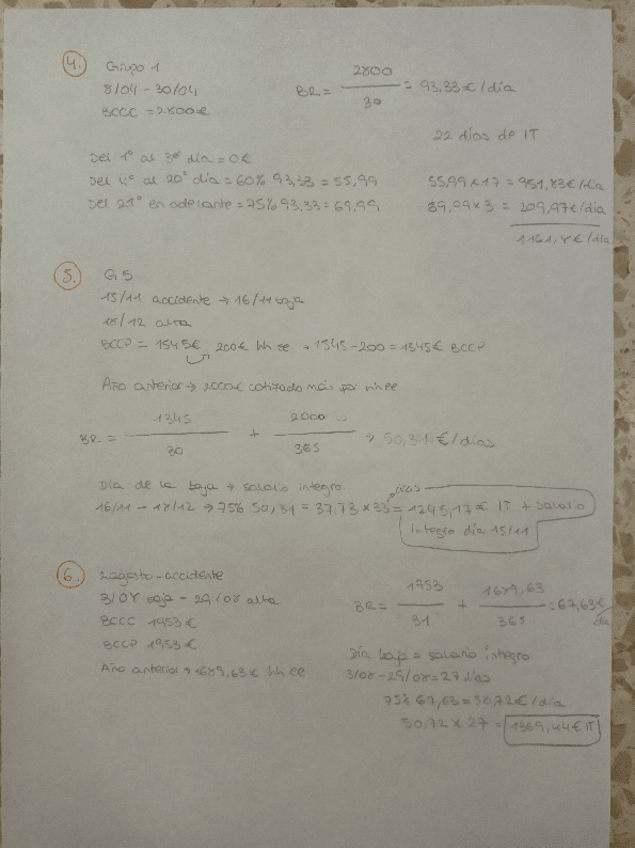 4. Grupo 1
8/04 - 30/04
BCCC = 2.800€
BR = 2800 / 30 = 93,33€/día
22 días de IT
Del 1º al 3er día = 0€
Del 4º al 20º día = 60% 93,33 = 55,99
55,99 x 17 = 951,83€/día
Del 21º en adelante = 75% 93,33 = 69,99
89,99 x 3 = 209,97€/día
1161,8€/día
5. G5
15/11 accidente → 16/11 baja
18/12 alta
BCCP = 1545€ 200€ hh ee → 1545-200 = 1345€ BCCP
Año anterior → 2000€ cotizado más por hh ee
BR = 1345 / 30 + 2000 / 365 → 50,31€/días
Día de la baja → salario integro.
16/11 - 18/12 → 75% 50,31 = 37,73 x 33 días = 1245,17€ IT + salario
integro día 15/11
6. 2 agosto - accidente
3/08 baja - 29/08 alta
BCCC 1953€
BCCP 1953€
Año anterior → 1689,63€ hh ee
BR = 1953 / 31 + 1689,63 / 365 = 67,63€/día
Día baja = salario integro
3/08 - 29/08 = 27 días
75% 67,63 = 50,72€/día
50,72 x 27 = 1369,44€ IT